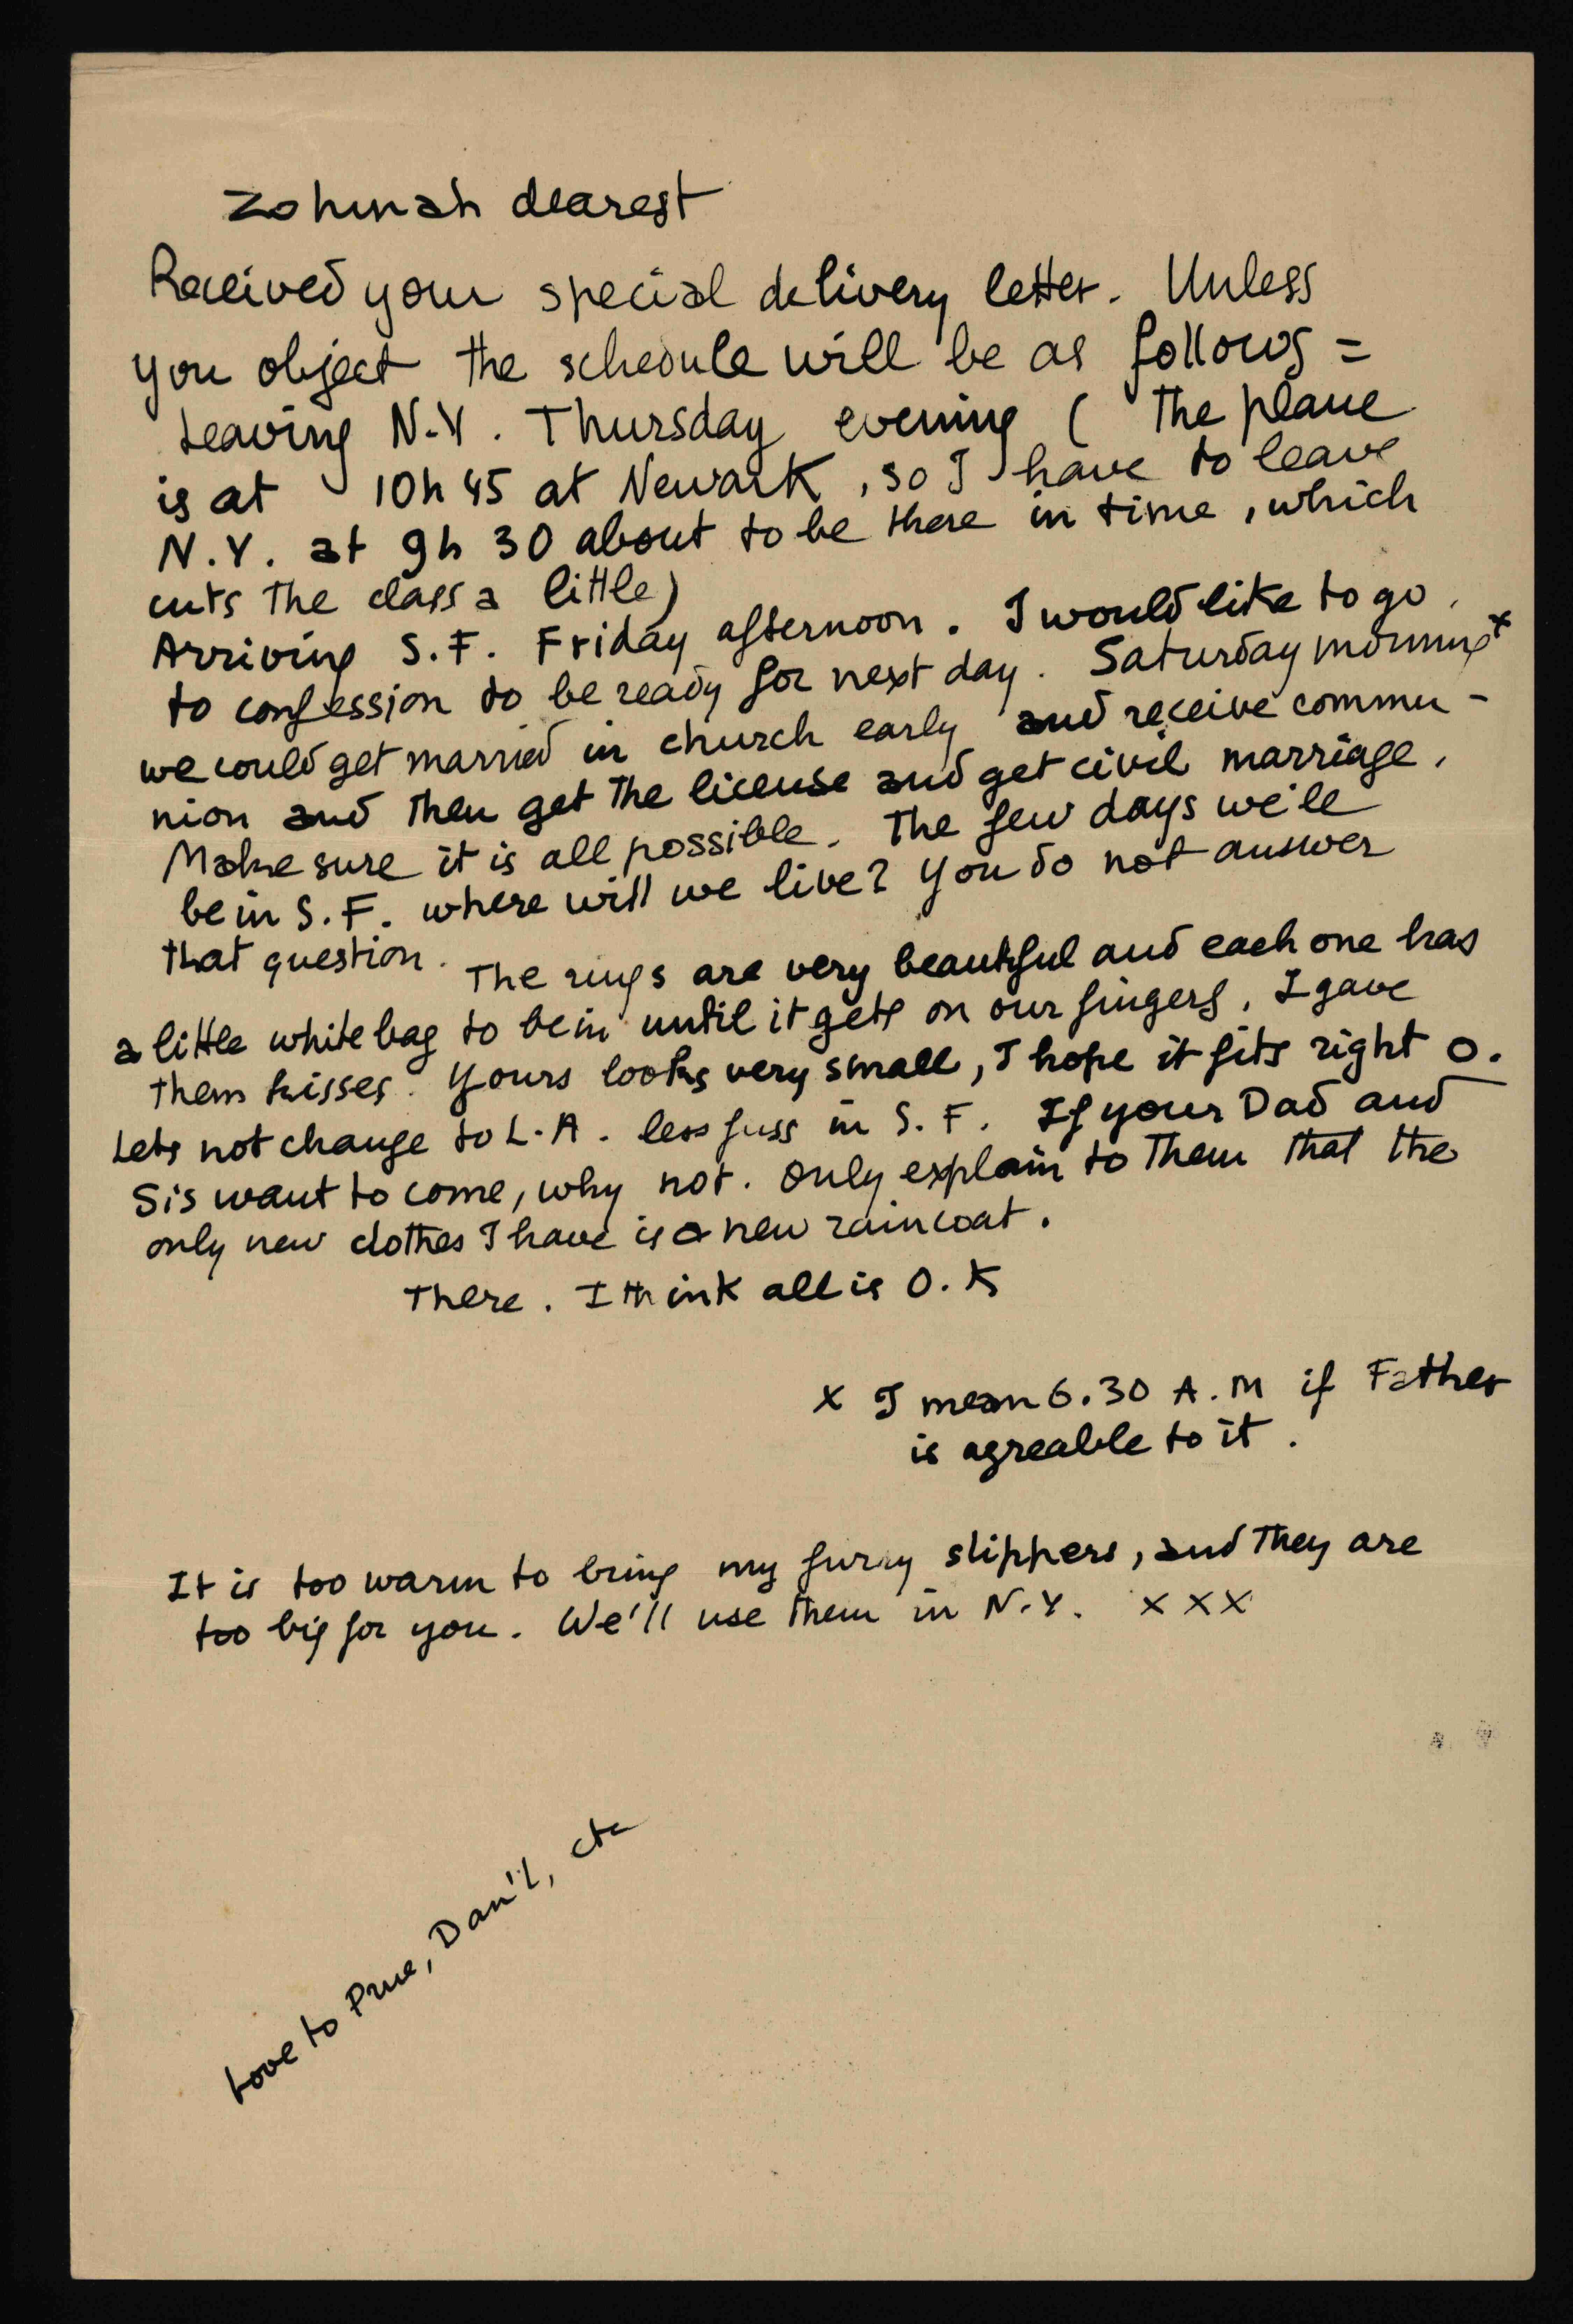 Zohmah dearest
Received your special delivery letter. Unless
you object the schedule will be as follows =
Leaving N.Y. Thursday evening ( The plane
is at 10h 45 at Newark, so I have to leave
N.Y. at 9h 30 about to be there in time, which
cuts the class a little)
Arriving S.F. Friday afternoon. I would like to go
to confession to be ready for next day. Saturday morning x
we could get married in church early and receive commu-
nion and then get the license and get civil marriage.
Make sure it is all possible. The few days we'll
be in S.F. where will we live? You do not answer
that question. The rings are very beautiful and each one has
a little white bag to be in until it gets on our fingers. I gave
them kisses. Yours looks very small, I hope it fits right O.
Lets not change to L.A. less fuss in S.F. If your Dad and
Sis want to come, why not. Only explain to them that the
only new clothes I have is a new raincoat.
There. I think all is O.K
x I mean 6.30 A.M if Father
is agreable to it.
It is too warm to bring my furry slippers, and they are
too big for you. We'll use them in N.Y. x x x
Love to Prue, Dan'l, etc